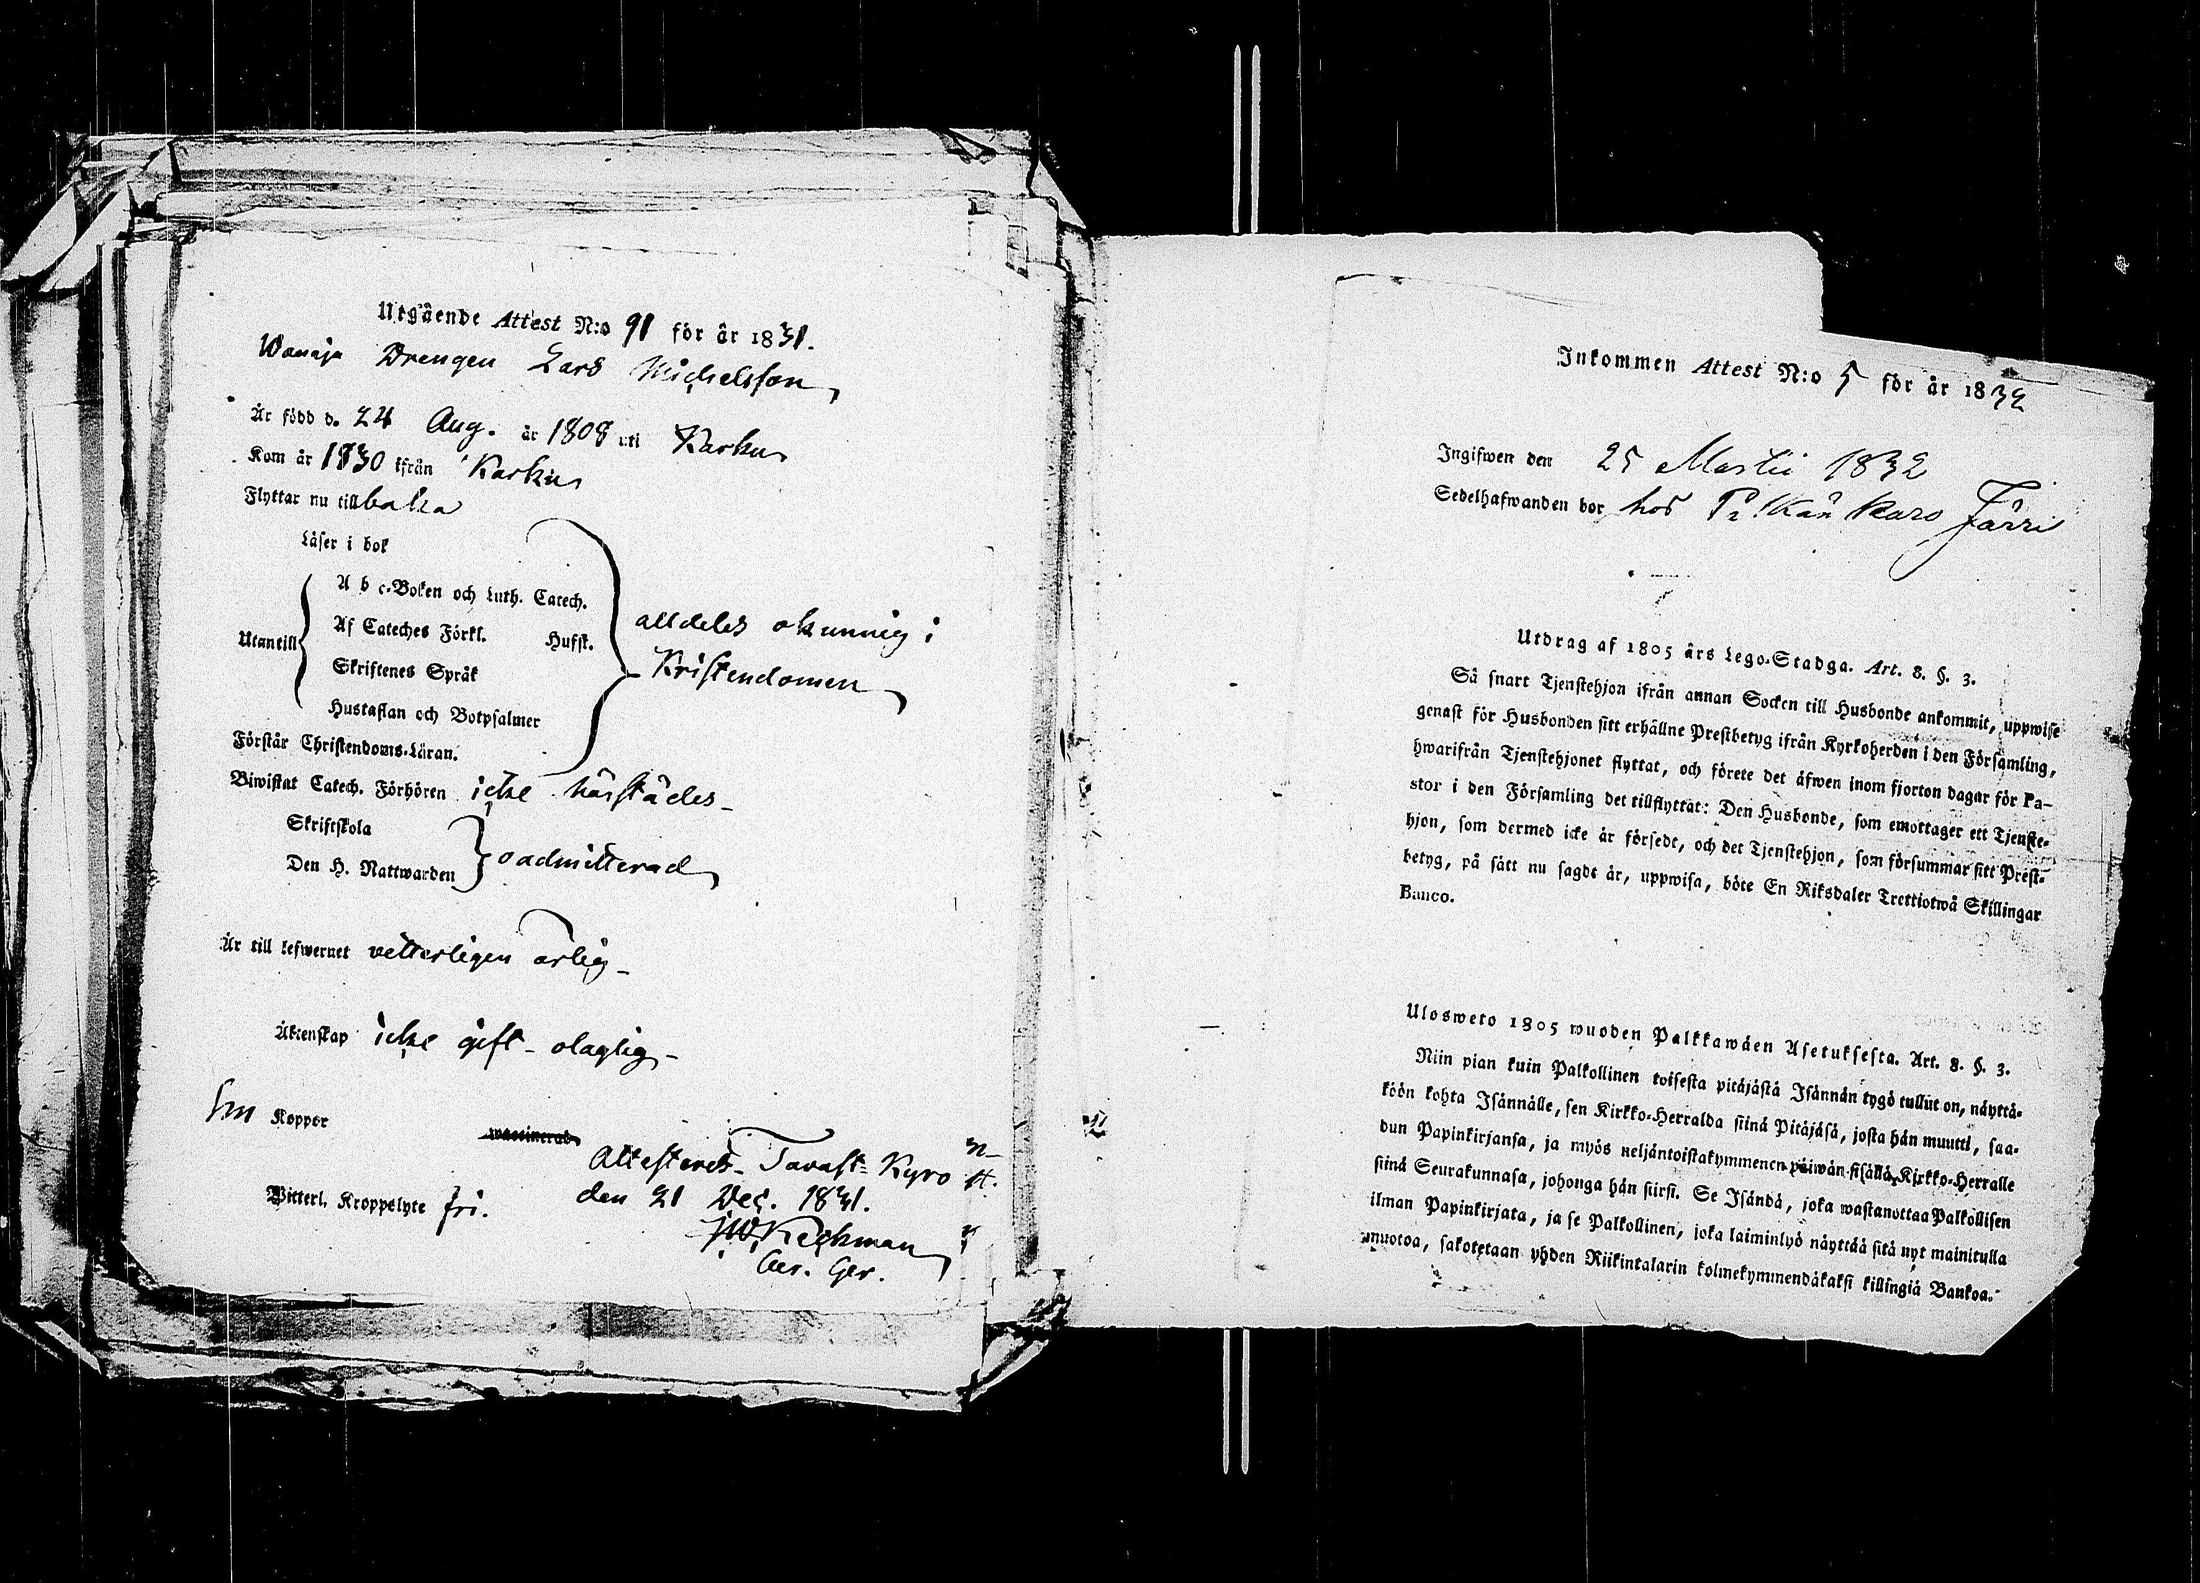 Utgående Attest N:o 91 för år 1831.
Wanaja Drengen Lars Michelsson
Är född d. 24 Aug. år 1808 uti Karku
Kom år 1830 ifrån Karku
Flyttar nu till baka
Läser i bok
A b c-Boken och Luth. Catech.
Af Cateches Förkl. Husst.
Utantill
Skriftenes Språk
Hustaflan och Botpsalmer
alldeles okunnig i
Kristendomen
Förstår Christendoms-Läran.
Biwistat Catech. Förhören icke härstädes
Skriftskola
Den H. Nattwarden
oadmitterad
Är till lefwernet vetterligen ärlig
Äktenskap icke gift - olaglig
Koppor waccinerad
Attesterer Tavast-Kyro
den 21 Dec. 1831.
Witterl. Kroppslyte fri.
Inkommen Attest N:o 5 för år 1832
Ingifwen den 25 Martii 1832
Sedelhafwanden bor hos Järri
Utdrag af 1805 års Lego-Stadga. Art. 8. §. 3.
Så snart Tjenstehjon ifrån annan Socken till Husbonde ankommit, uppwise
genast för Husbonden sitt erhållne Prestbetyg ifrån Kyrkoherden i den Församling,
hwarifrån Tjenstehjonet flyttat, och förete det äfwen inom fjorton dagar för Pa-
stor i den Församling det tillflyttat: Den Husbonde, som emottager ett Tjenste-
hjon, som dermed icke är försedt, och det Tjenstehjon, som försummar sitt Prest-
betyg, på sätt nu sagdt är, uppwisa, böte En Riksdaler Trettiotwå Skillingar
Banco.
Ulosweto 1805 wuoden Palkkawäen Asetuksesta. Art. 8. §. 3.
Niin pian kuin Palkollinen toisesta pitäjästä Isännän tygö tullut on, näyttä-
köön kohta Isännälle, sen Kirkko-Herralda siinä Pitäjäsä, josta hän muutti, saa-
dun Papinkirjansa, ja myös neljäntoistakymmenen päiwän sisällä, Kirkko-Herralle
siinä Seurakunnasa, johonga hän siirsi. Se Isändä, joka wastanottaa Palkollisen
ilman Papinkirjata, ja se Palkollinen, joka laiminlyö näyttää sitä nyt mainitulla
muotoa, sakotetaan yhden Riikintalarin kolmekymmendäkaksi killingiä Bankoa.